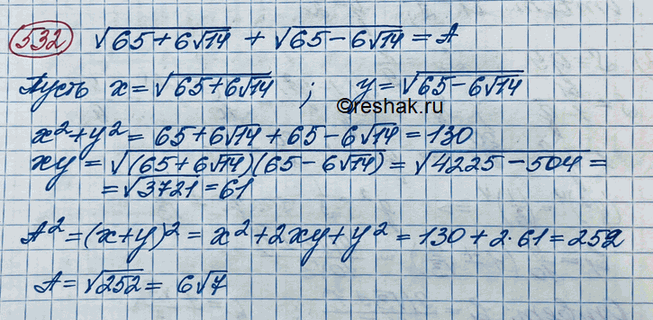 532 √(65+6√14) + √(65-6√14) = A
Пусть x=√(65+6√14) ; y=√(65-6√14)
©reshak.ru
x²+y²= 65+6√14+65-6√14=130
xy=√((65+6√14)(65-6√14))=√(4225-504)=
=√3721=61
A²=(x+y)²= x²+2xy+y²=130+2·61=252
A=√252= 6√7